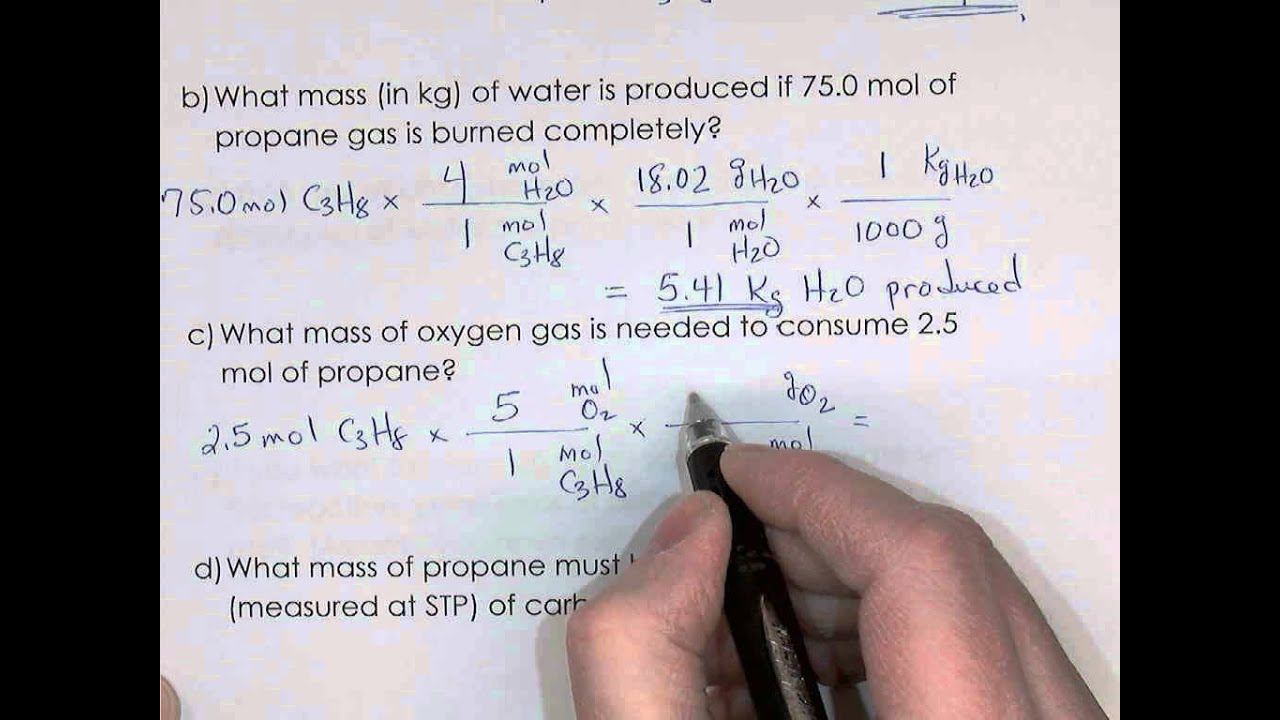 b) What mass (in kg) of water is produced if 75.0 mol of
propane gas is burned completely?
75.0 mol C3H8 × 4 mol H2O / 1 mol C3H8 × 18.02 g H2O / 1 mol H2O × 1 Kg H2O / 1000 g
= 5.41 Kg H2O produced
c) What mass of oxygen gas is needed to consume 2.5
mol of propane?
2.5 mol C3H8 × 5 mol O2 / 1 mol C3H8 × g O2 / mol =
d) What mass of propane must
(measured at STP) of carb